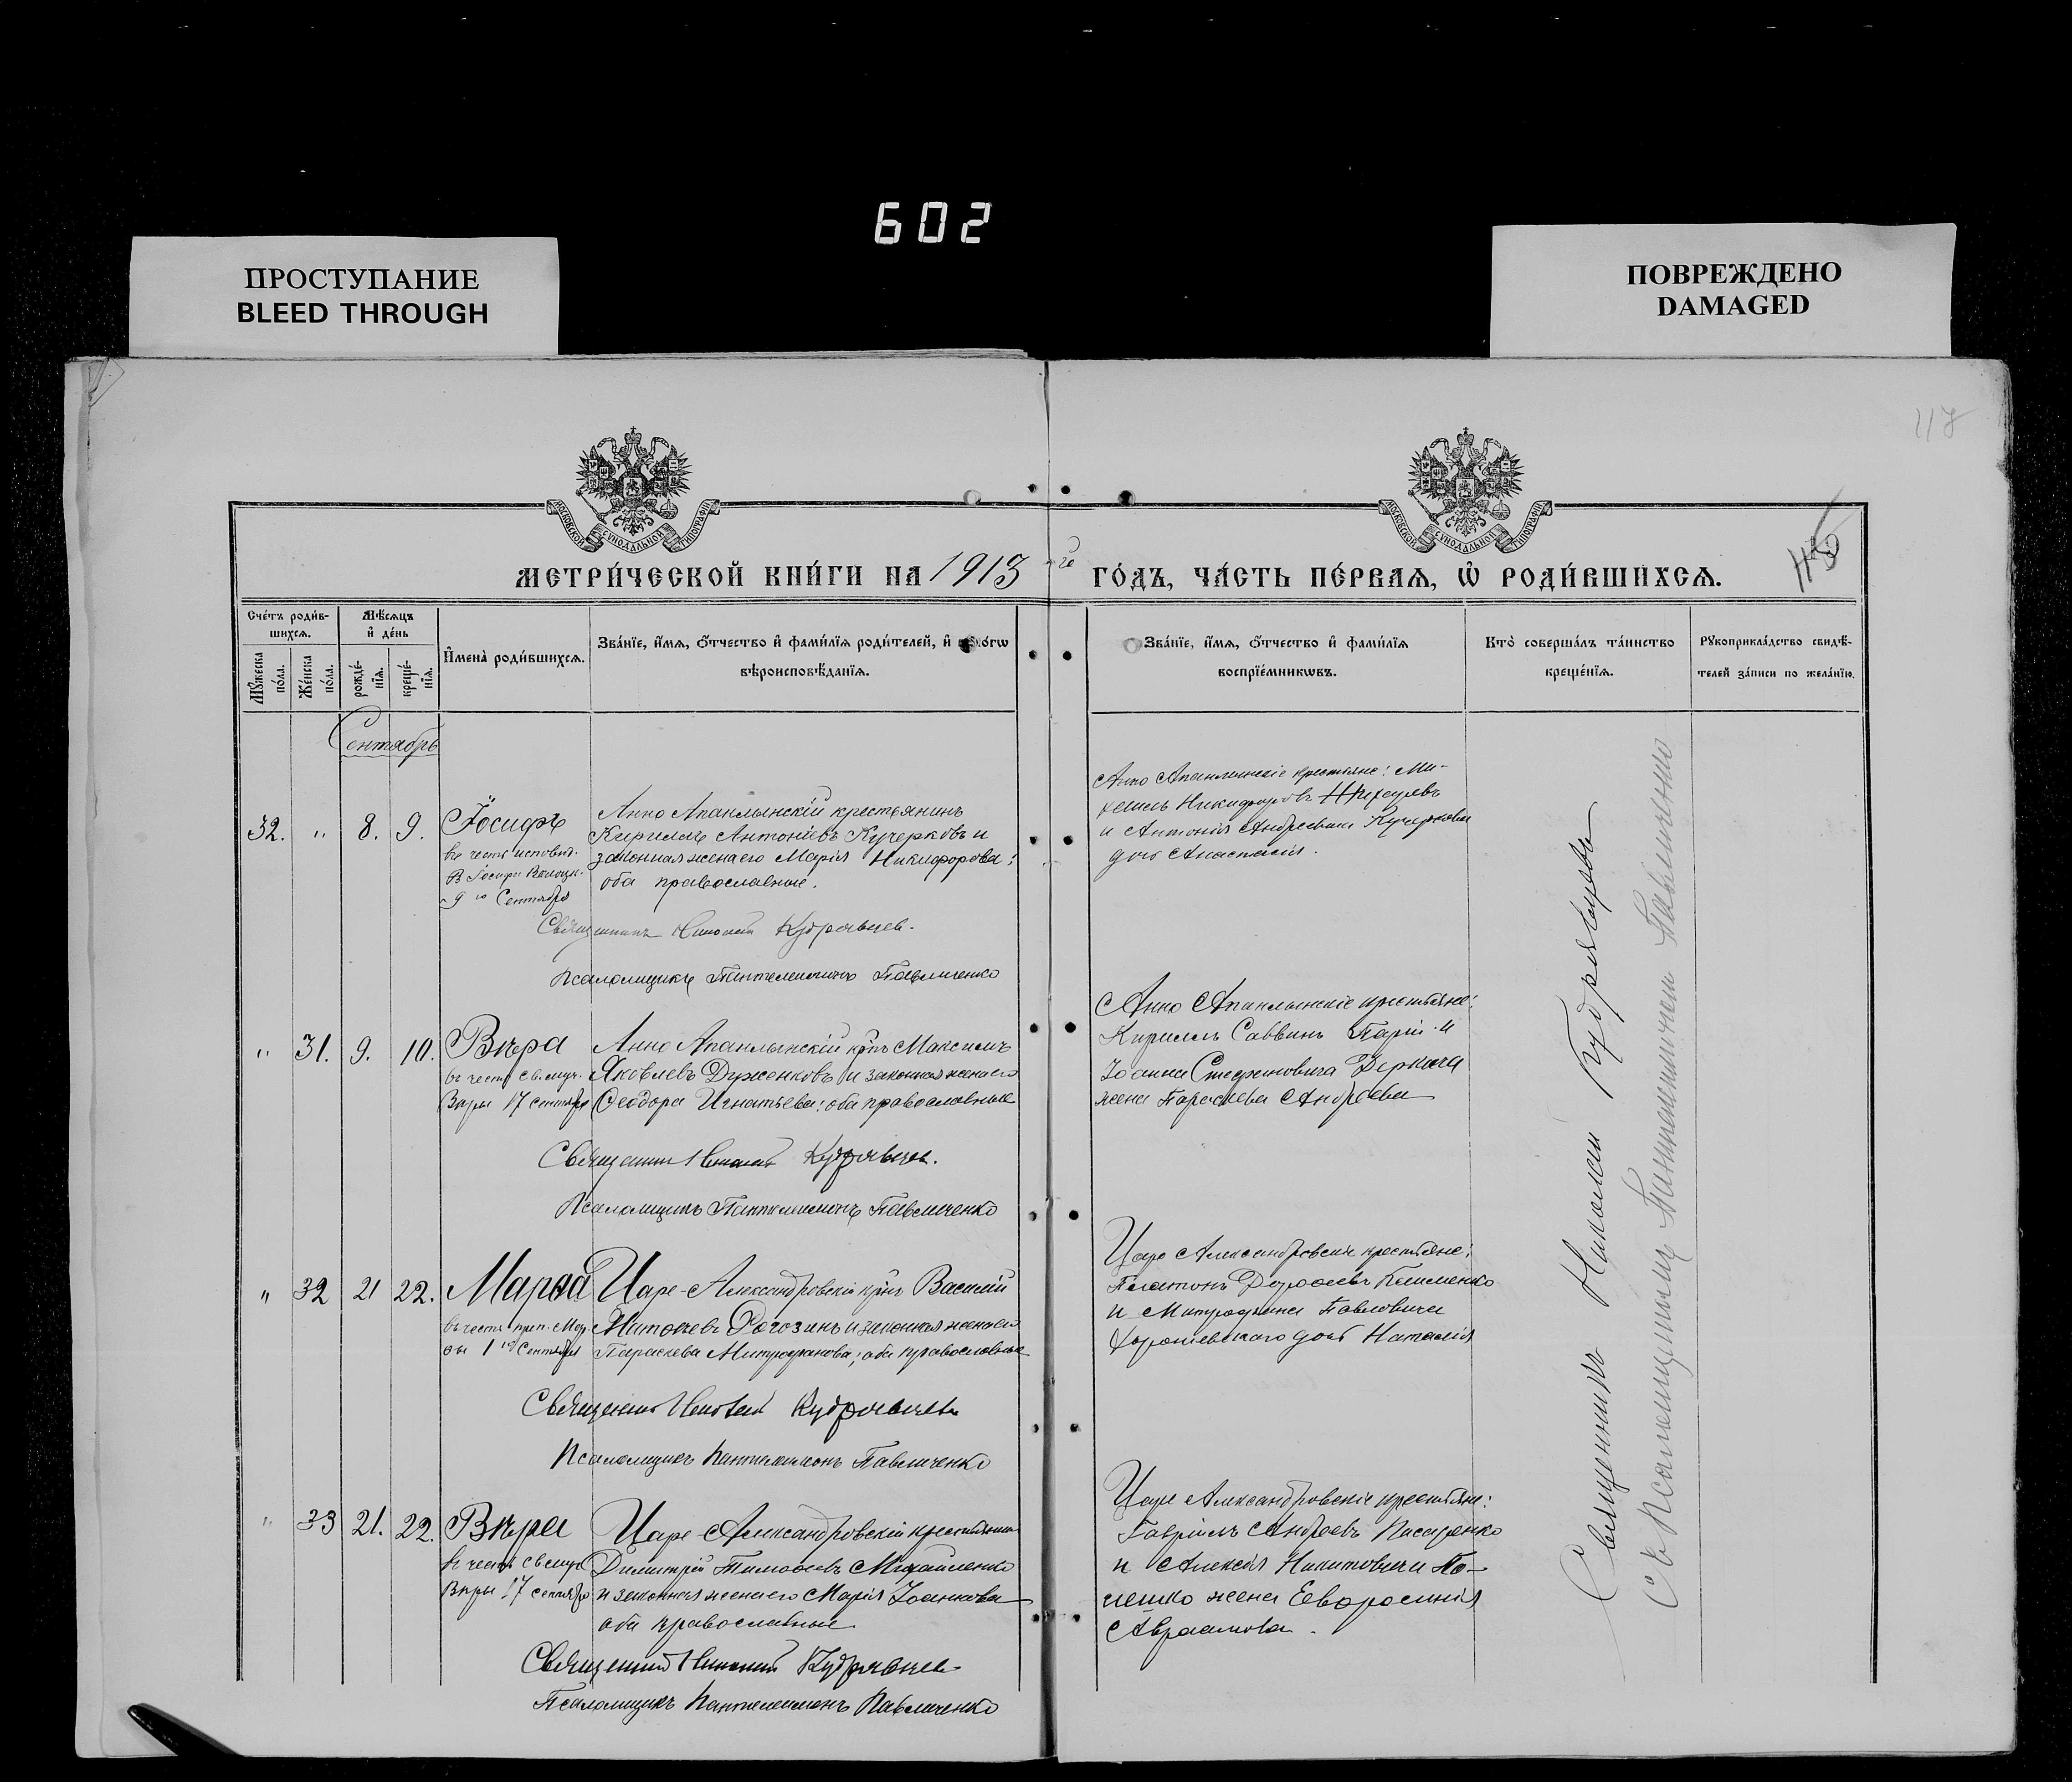 602
ПРОСТУПАНИЕ
BLEED THROUGH
ПОВРЕЖДЕНО
DAMAGED
МОСКОВСКОЙ СУНОДАЛЬНОЙ ТИПОГРАФІИ
МОСКОВСКОЙ СУНОДАЛЬНОЙ ТИПОГРАФІИ
МЕТРИ́ЧЕСКОЙ КНИ́ГИ НА 1913 го ГО́ДЪ, ЧА́СТЬ ПЕ́РВАѦ, Ѡ҆ РОДИ́ВШИХСѦ.
Сче́тъ роди́в-
шихсѧ.
Мѣ́сѧцъ
и҆ де́нь
Мꙋ́жеска по́ла.
Же́нска по́ла.
рожде́-
нїѧ.
креще́-
нїѧ.
И҆мена̀ роди́вшихсѧ.
Зва́нїе, и҆́мѧ, ѻ҆́тчество и҆ фами́лїѧ роди́телей, и҆
вѣроисповѣ́данїѧ.
Зва́нїе, и҆́мѧ, ѻ҆́тчество и҆ фами́лїѧ
воспрїе́мникѡвъ.
Кто̀ соверша́лъ та́инство
креще́нїѧ.
Рꙋкоприкла́дство свидѣ́-
телей за́писи по жела́нїю.
Сентябрь
32. " 8. 9. Іосифъ
въ честь исповѣд.
9 го Сентября
Анно Апанлынскій крестьянинъ
Кириллъ Антоніевъ Кучерковъ и
законная жена его Марія Никифорова;
оба православные.
Священникъ Николай Кудрявцев.
Псаломщикъ Пантелеимонъ Павличенко
Анно Апанлынскіе крестьяне: Ми-
хаилъ Никифоровъ
и Антонія Андреевича Кучеркова
дочь Анастасія.
" 31. 9. 10. Вѣра
въ честь св. муч.
Вѣры 17 сентября
Анно Апанлынскій кр-нъ Максимъ
Яковлевъ Дуженковъ и законная жена его
Ѳеодора Игнатьева: оба православные
Священникъ Николай Кудрявцев.
Псаломщикъ Пантелеимонъ Павличенко
Анно Апанлынскіе крестьяне:
Кириллъ Саввинъ Парій и
Іоанна Стефановича Деркача
жена Параскева Андреева
" 32 21 22. Марѳа
въ честь преп. Мар-
ѳы 1 го Сентября
Царе-Александровскій кр-нъ Василій
Рогозинъ и законная жена его
Параскева Митрофанова; оба православные
Священникъ Николай Кудрявцевъ
Псаломщикъ Пантелеимонъ Павличенко
Царе Александровскіе крестьяне:
Платонъ Дороѳеевъ Клименко
и Митрофана Павловича
Хорошевскаго дочь Наталія
" 33 21. 22. Вѣра
въ честь св муч
Вѣры 17 сентября
Царе-Александровскій крестьянинъ
Димитрій Тимоѳеевъ Михайленко
и законная жена его Марія Іоаннова
оба православные
Священникъ Николай Кудрявцев
Псаломщикъ Пантелеимонъ Павличенко
Царе Александровскіе крестьяне:
Гавріилъ Андреевъ Писаренко
и Алексія Никитовича
жена Евфросинія
Авраамова.
Священникъ Николай Кудрявцевъ
Съ Псаломщикомъ Пантелеимономъ Павличенко